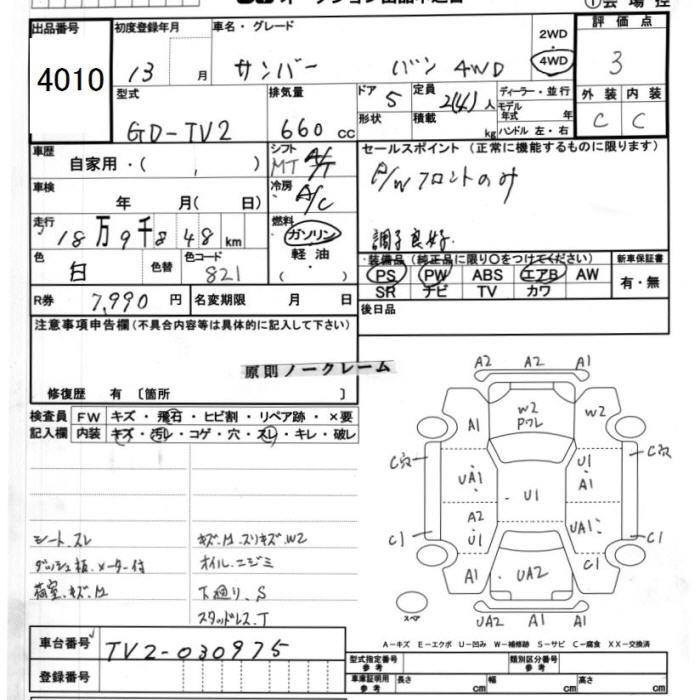 出品番号 4010
初度登録年月 13 月
車名・グレード サンバー バン 4WD
2WD
4WD
評価点 3
外装 内装
C C
型式 GD-TV2
排気量 660 cc
ドア 5
形状
定員 2(4)人
積載 kg
ディーラー・並行
モデル年式 年
ハンドル 左・右
車歴 自家用・( )
シフト MT A/T
冷房 A/C
セールスポイント (正常に機能するものに限ります)
P/Wフロントのみ
調子良好.
車検 年 月( 日)
走行 18万9千848km
燃料 ガソリン
軽油
( )
色 白 色替
色コード 821
装備品 (純正品に限り○をつけてください)
PS PW ABS エアB AW
SR ナビ TV カワ
新車保証書
有・無
R券 7,990 円
名変期限 月 日
後日品
注意事項申告欄(不具合内容等は具体的に記入して下さい)
原則ノークレーム
修復歴 有 〔箇所 〕
検査員記入欄
FW キズ・飛石・ヒビ割・リペア跡・×要
内装 キズ・汚レ・コゲ・穴・スレ・キレ・破レ
シート.スレ
ダッシュ板.メーター付
荷室.キズ.凹
キズ.凹.スリキズ.W2
オイル.ニジミ
下廻り.S
スタッドレス.T
A2 A2 A1
W2
A1
W2
C穴
C穴
UA1
U1
U1
A1
A2
U1
UA1
C1
C1
A1
UA2
C1
UA2 A1 A1
スペア
A-キズ E-エクボ U-凹み W-補修跡 S-サビ C-腐食 XX-交換済
車台番号 TV2-030975
登録番号
型式指定番号 参考
類別区分番号 参考
車庫証明用 参考
長さ cm
幅 cm
高さ cm